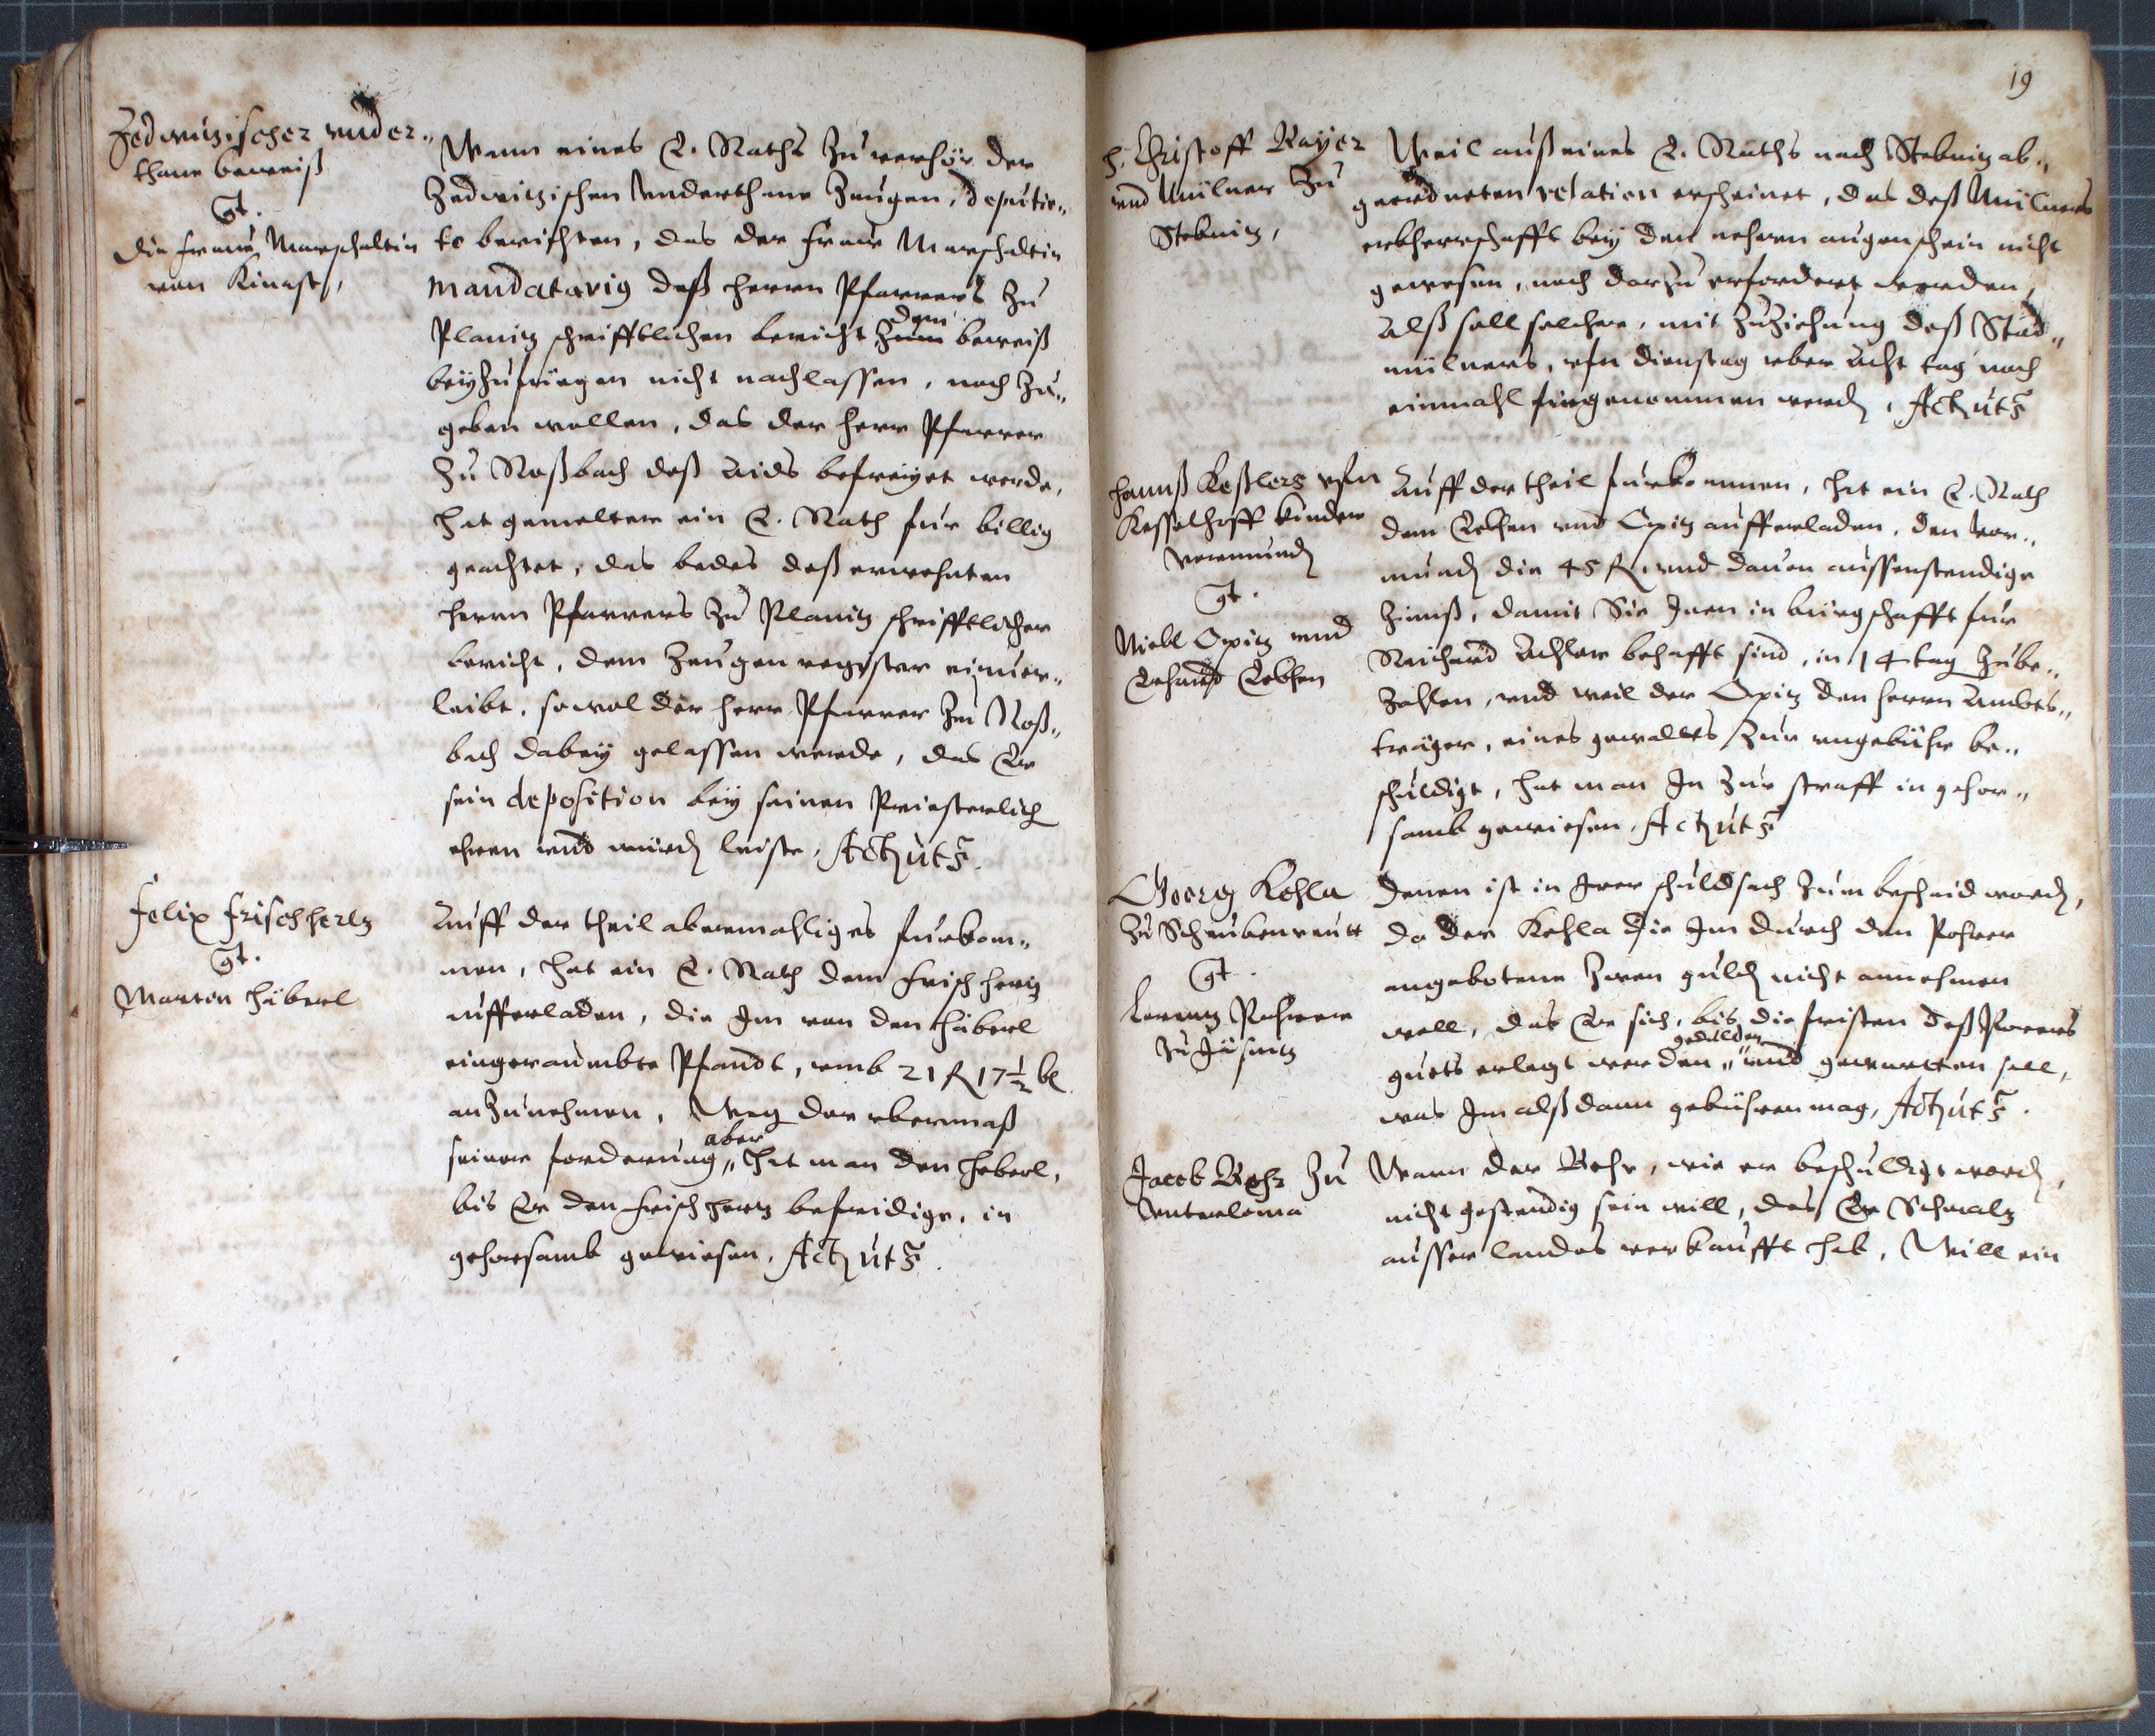 Zedwitzischer vnder„
thane beweiß
Ct.
die fraue Marschaltin
von Kinast,
Wann eines E. Raths zu verhör der
Zedwitzischen vnderthane Zeugen, deputir„
te berichten, das der fraue Marschaltin
mandatarius deß herrn Pfarrers zu
Planitz schrifftlichen bericht zum dem beweiß
beyzufüegen nicht nachlassen, noch zu„
geben wollen, das der herr Pfarrer
zu Roßbach deß aids befreyet werde,
hat gemelter ein E. Rath fur billig
geachtet, das bedes deß erwehnten
herrn Pfarrers zu Planitz schrifftlicher
bericht, dem Zeugen register einuer„
leibt, sowol der herr Pfarrer zu Roß„
bach dabey gelassen werde, das Er
sein deposition bey seinen Priesterlich
ehren vnd würd leiste, Act ut s.
Felix Frischhertz
Ct.
Marten Häberl
Auff der theil abermahliges furkom„
men, hat ein E. Rath dem Frischhertz
aufferladen, die Jm von den Häberl
eingeraumbte Pfandt, vmb 21 fl 17½ kr
anzunehmen, Weg der vbermaß
seiner forderung aber„ hat man den Heberl,
bis Er den Frischhertz befridige, in
gehorsamb gewiesen, Act ut s.
19
H. Christoff Bayer
vnd Mülner zu
Stebnitz,
Weil auß eines E. Raths nach Stebnitz ab„
geordneten relation erscheinet, das deß Mülners
erbherrschafft bey den nehern augenschein nicht
gewesen, noch darzu erfordert worden,
Alß soll solcher, mit Zuziehung deß Stad„
mülners, vfn dienstag vber acht tag noch
einmahl furgenommen werd, Act ut s
Hannß Keßlers vfm
Kesselhoff kinder
vormund
Ct.
Nickl Opitz vnd
Erhard Ebhen
Auff der theil furkommen, hat ein E. Rath
dem Ebhen vnd Opitz aufferladen, den vor„
mund die 45 fl. vnd dauon aussenstendige
Zinnß, damit Sie Jnen in bürgschafft fur
Reichard Adler behafft sind, in 14 tag zube„
zahlen, vnd weil der Opitz den herrn Ambts„
träger, eines gewaltes zur vngebühr be„
schuldigt, hat man Jn zur straff in gehor„
samb gewiesen, Act ut s
Georg Kohla
zu Schnubenreutt
Ct.
Lorentz Rohrer
zu
Denen ist in Jrer schuldsach zum bescheid word,
da der Kohla die Jm durch den Rohrer
angebotene Zwen guld nicht annehmen
woll, das Er sich, bis die fristen deß
guets erlegt werden, gedulden„ vnd gewartten soll,
was Jm alß dann gebühren mag, Act ut s.
Jacob Behr zu
Vnterloma
Wann der Behr, wie er beschuldigt word,
nicht gestendig sein will, das Er Schmaltz
ausser landes verkaufft hab, Will ein